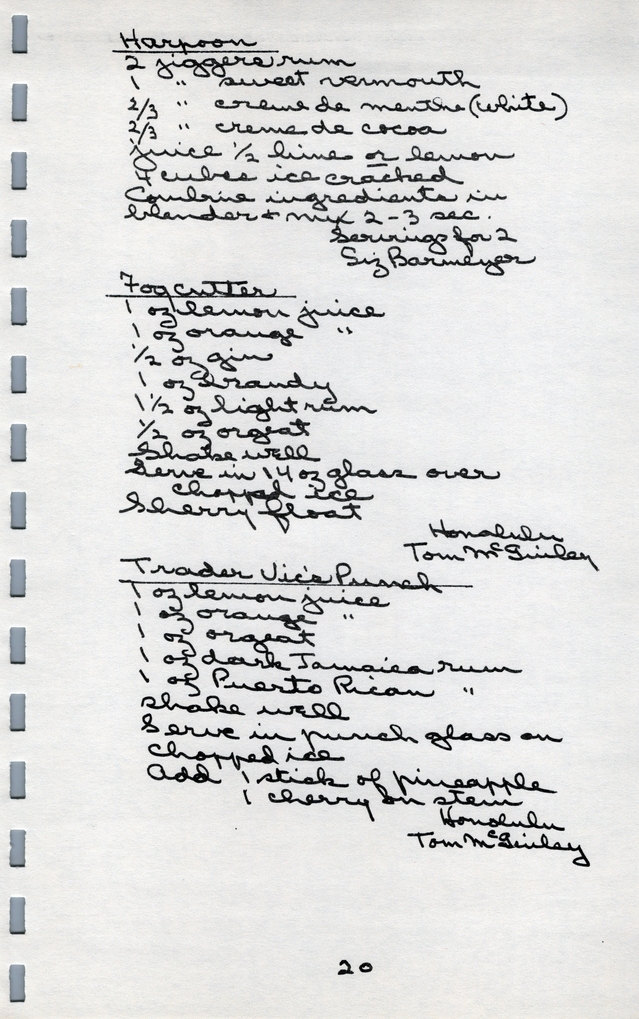 Harpoon
2 jiggers rum
1 " sweet vermouth
2/3 " creme de menthe (white)
2/3 " creme de cocoa
juice 1/2 lime or lemon
4 cubes ice cracked
Combine ingredients in
blender & mix 2-3 sec.
Servings for 2
Siz Barmeyer
Fogcutter
1 oz lemon juice
1 oz orange "
1/2 oz gin
1 oz Brandy
1 1/2 oz light rum
1/2 oz orgeat
Shake well
Serve in 14 oz glass over
chopped ice
Sherry float
Honolulu
Tom McGinley
Trader Vic's Punch
1 oz lemon juice
1 oz orange "
1 oz orgeat
1 oz dark Jamaica rum
1 oz Puerto Rican "
shake well
Serve in punch glass on
chopped ice
Add 1 stick of pineapple
1 cherry on stem
Honolulu
Tom McGinley
20